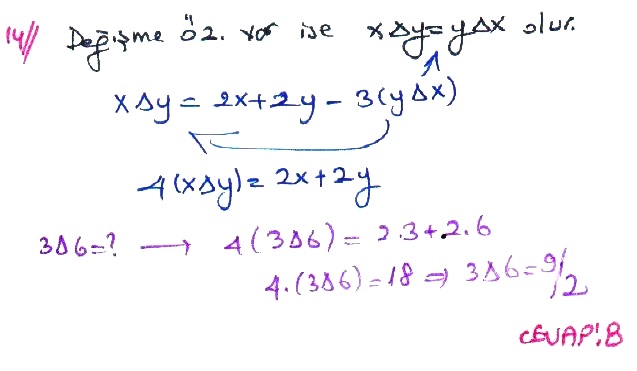 14// Değişme öz. var ise x∆y=y∆x olur.
x∆y = 2x+2y - 3(y∆x)
4(x∆y)= 2x+2y
3∆6=? → 4(3∆6) = 2.3+2.6
4.(3∆6)=18 ⇒ 3∆6=9/2
CEVAP:B